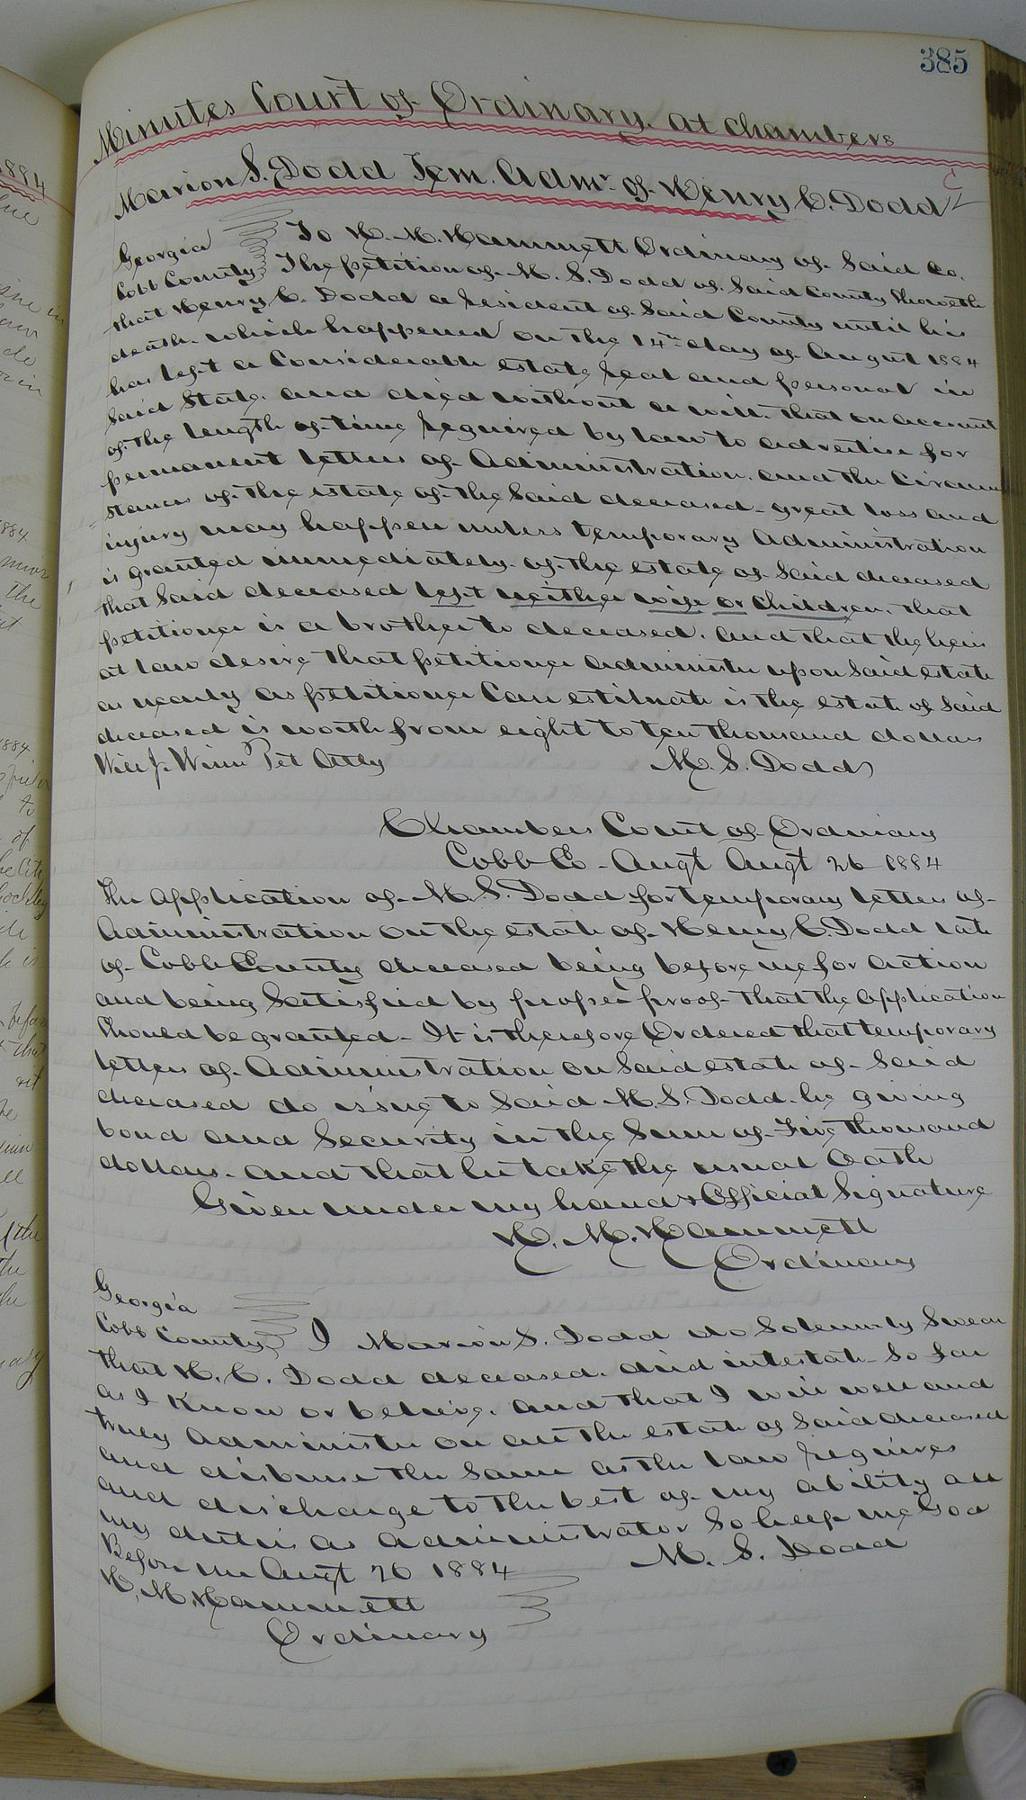 385
Minutes Court of Ordinary. at Chambers
Marion S. Dodd Tem. Admr. of Henry C. Dodd
Georgia To H. M. Hammett Ordinary of Said Co.
Cobb County The petition of M. S. Dodd of Said County Showeth
that Henry C. Dodd a resident of Said County until his
death which happened on the 14th day of August 1884
has left a Considerable estate real and personal in
Said State. and died without a will. that on account
of the length of time required by law to advertise for
permanent letters of Administration. and the Circum
stances of the estate of the Said deceased great loss and
injury may happen unless temporary Administration
is granted immediately of the estate of Said deceased
that Said deceased left neither wife or Children, that
petitioner is a brother to deceased. and that the heirs
at law desire that petitioner Administer upon Said estate
as nearly as petitioner Can estimate is the estate of Said
deceased is worth from eight to ten thousand dollars
Will J. Winn Pet Atty M. S. Dodd
Chambers Court of Ordinary
Cobb Co - Augt Augt 26 1884
The Application of M. S. Dodd for temporary letters of
Administration on the estate of Henry C. Dodd late
of Cobb County deceased being before me for action
and being Satisfied by proper proof that the Application
Should be granted - It is therefore Ordered that temporary
letters of Administration on Said estate of Said
deceased do issue to Said M. S. Dodd he giving
bond and Security in the Sum of Five thousand
dollars. and that he take the usual Oath
Given under my hand & Official Signature
H. M. Hammett
Ordinary
Georgia
Cobb County I Marion S. Dodd do Solemnly Swear
that H. C. Dodd deceased. died intestate So far
as I Know or believe. and that I will well and
truly Administer on all the estate of Said deceased
and disburse the Same as the law requires
and discharge to the best of my ability all
my duties as Administrator So help me God
Before me Augt 26 1884 M. S. Dodd
H. M. Hammett
Ordinary